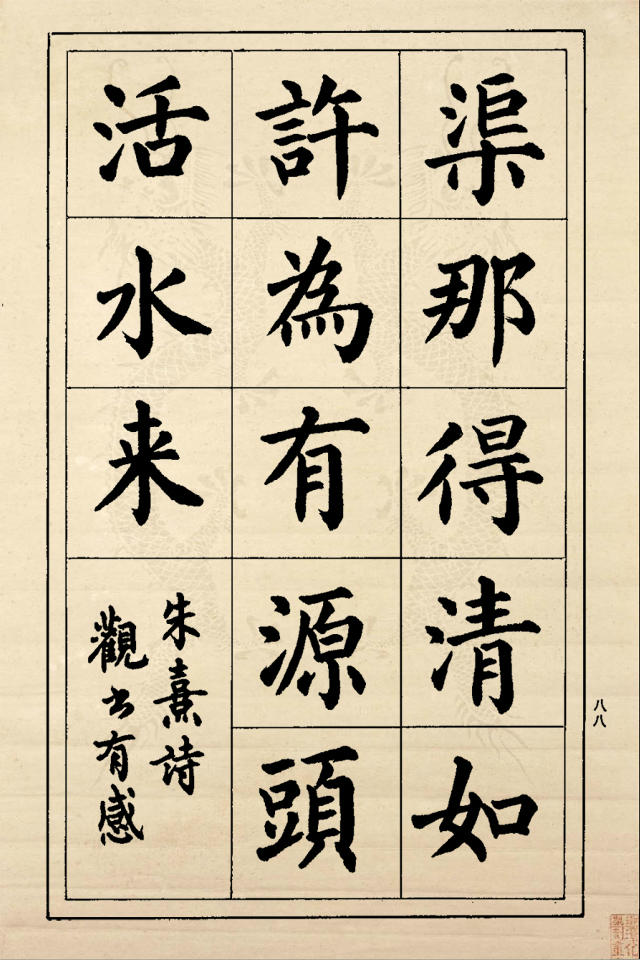 渠那得清如
許為有源頭
活水来
朱熹詩
觀书有感
八八